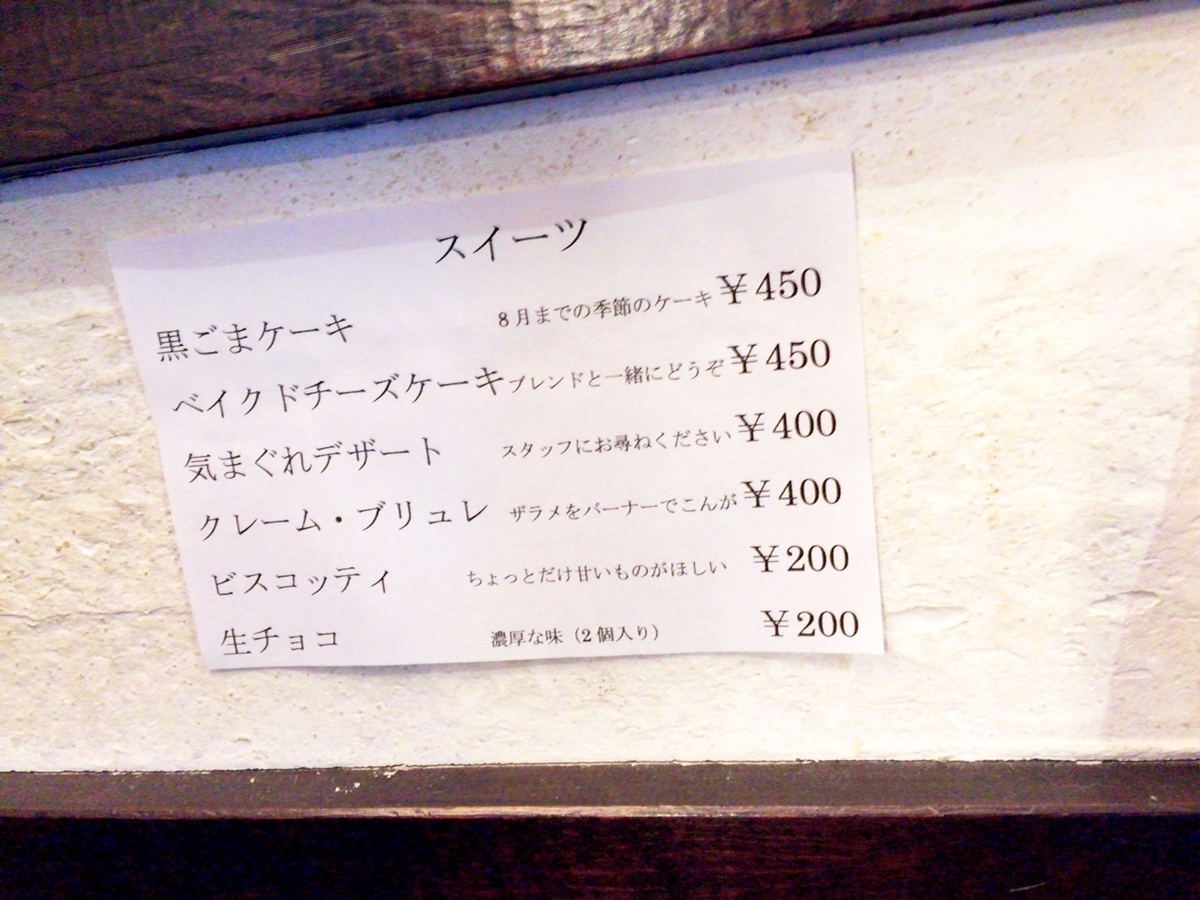 スイーツ
黒ごまケーキ 8月までの季節のケーキ ￥450
ベイクドチーズケーキ ブレンドと一緒にどうぞ ￥450
気まぐれデザート スタッフにお尋ねください ￥400
クレーム・ブリュレ ザラメをバーナーでこんが ￥400
ビスコッティ ちょっとだけ甘いものがほしい ￥200
生チョコ 濃厚な味（2個入り） ￥200